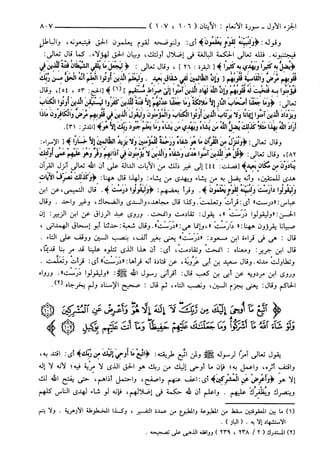 الجزء الأول ـ سورة الأنعام : الآيتان (١٠٦ ، ١٠٧) ٨٠٧
وقوله : ﴿ولنبينه لقوم يعلمون﴾ أي : ولنوضحه لقوم يعلمون الحق فيتبعونه ، والباطل
فيجتنبونه . فلله تعالى الحكمة البالغة في إضلال أولئك ، وبيان الحق لهؤلاء. كما قال تعالى :
﴿يضل به كثيرا ويهدي به كثيرا﴾ ، وقال تعالى : ﴿ليجعل ما يلقي الشيطان فتنة للذين في
قلوبهم مرض والقاسية قلوبهم﴾ ﴿وإن الظالمين لفي شقاق بعيد . وليعلم الذين أوتوا العلم أنه الحق من ربك
فيؤمنوا به فتخبت له قلوبهم وإن الله لهاد الذين آمنوا إلى صراط مستقيم﴾ (الحج: ٥٣ ، ٥٤) ، وقال
تعالى : ﴿وما جعلنا أصحاب النار إلا ملائكة وما جعلنا عدتهم إلا فتنة للذين كفروا ليستيقن الذين أوتوا الكتاب
ويزداد الذين آمنوا إيمانا ولا يرتاب الذين أوتوا الكتاب والمؤمنون وليقول الذين في قلوبهم مرض والكافرون ماذا
أراد الله بهذا مثلا كذلك يضل الله من يشاء ويهدي من يشاء وما يعلم جنود ربك إلا هو﴾ (المدثر: ٣١) .
وقال : ﴿وننزل من القرآن ما هو شفاء ورحمة للمؤمنين ولا يزيد الظالمين إلا خسارا﴾ (الإسراء:
٨٢) ، وقال تعالى : ﴿قل هو للذين آمنوا هدى وشفاء والذين لا يؤمنون في آذانهم وقر وهو عليهم عمى أولئك
ينادون من مكان بعيد﴾ (فصلت: ٤٤) إلى غير ذلك من الآيات الدالة على أن الله تعالى أنزل القرآن
هدى للمتقين ، وأنه يضل به من يشاء ويهدي من يشاء؛ ولهذا قال ههنا : ﴿وكذلك نصرف الآيات
وليقولوا دارست ولنبينه لقوم يعلمون﴾ . وقرأ بعضهم : ﴿وليقولوا درست﴾ . قال التميمي ، عن ابن
عباس «درست» أي : قرأت وتعلمت . وكذا قال مجاهد ، والسدي والضحاك ، وغير واحد . وقال
الحسن : ﴿وليقولوا درست﴾ ، يقول : تقادمت وانمحت . وروى عبد الرزاق عن ابن الزبير : إن
صبيانا يقرؤون ههنا : «دارست» ، وإنما هي : «درست» . وقال شعبة : حدثنا أبو إسحاق الهمداني ،
قال : هي في قراءة ابن مسعود : «درست» يعني بغير ألف ، بنصب السين ووقف على التاء .
قال ابن جرير : ومعناه : انمحت وتقادمت ، أي : أن هذا الذي تتلوه علينا قد مر بنا قديما ،
وتطاولت مدته . وقال سعيد بن أبي عروبة ، عن قتادة أنه قرأها : «درست» أي : قرأت وتعلمت .
وروى ابن مردويه عن أبي بن كعب قال : أقرأني رسول الله ﷺ : «وليقولوا درست» . ورواه
الحاكم وقال : يعني بجزم السين ، ونصب التاء ، ثم قال : صحيح الإسناد ولم يخرجاه (٢) .
﴿اتبع ما أوحي إليك من ربك لا إله إلا هو وأعرض عن المشركين
ولو شاء الله ما أشركوا وما جعلناك عليهم حفيظا وما أنت عليهم بوكيل﴾
يقول تعالى آمرا لرسوله ﷺ ولمن اتبع طريقته : ﴿اتبع ما أوحي إليك من ربك﴾ أي : اقتد به ،
واقتف أثره ، واعمل به؛ فإن ما أوحي إليك من ربك هو الحق الذي لا مرية فيه؛ لأنه لا إله
إلا هو ﴿وأعرض عن المشركين﴾ أي: اعف عنهم واصفح ، واحتمل أذاهم ، حتى يفتح الله لك
وينصرك ويظفرك عليهم . واعلم أن لله حكمة في إضلالهم ، فإنه لو شاء لهدى الناس كلهم
(١) ما بين المعقوفين سقط من المطبوعة والمطبوع من عمدة التفسير ، وكذا المخطوطة الأزهرية . ولا يتم
الاستشهاد إلا به . (الباز) .
(٢) المستدرك (٢ / ٢٣٨ ، ٢٣٩) ووافقه الذهبي على تصحيحه .